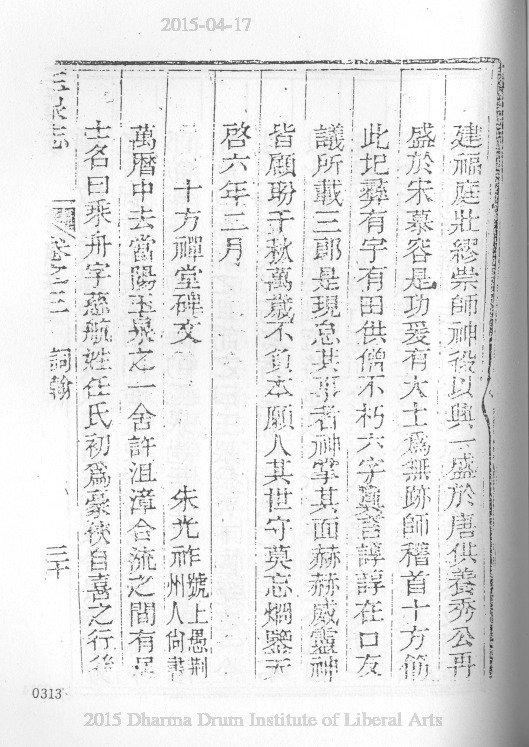 2015-04-17
建福庭壯繆崇師神役以興一盛於唐供養秀公再
盛於宋慕容是功爰有大士為無跡師稽首十方飭
此圮彝有宇有田供僧不朽六字真言諄諄在口友
議所載三郎是現怠其事者神掌其面赫赫威靈神
皆顧盼千秋萬歲不負本願人其世守莫忘爛鑒天
啓六年三月
十方禪堂碑文
朱光祚號上愚荆
州人尚書
萬曆中去當陽玉泉之一舍許沮漳合流之間有居
士名曰乘舟字慈航姓任氏初為豪俠自喜之行後
玉泉志
卷之三
詞翰
三十
0313
2015 Dharma Drum Institute of Liberal Arts